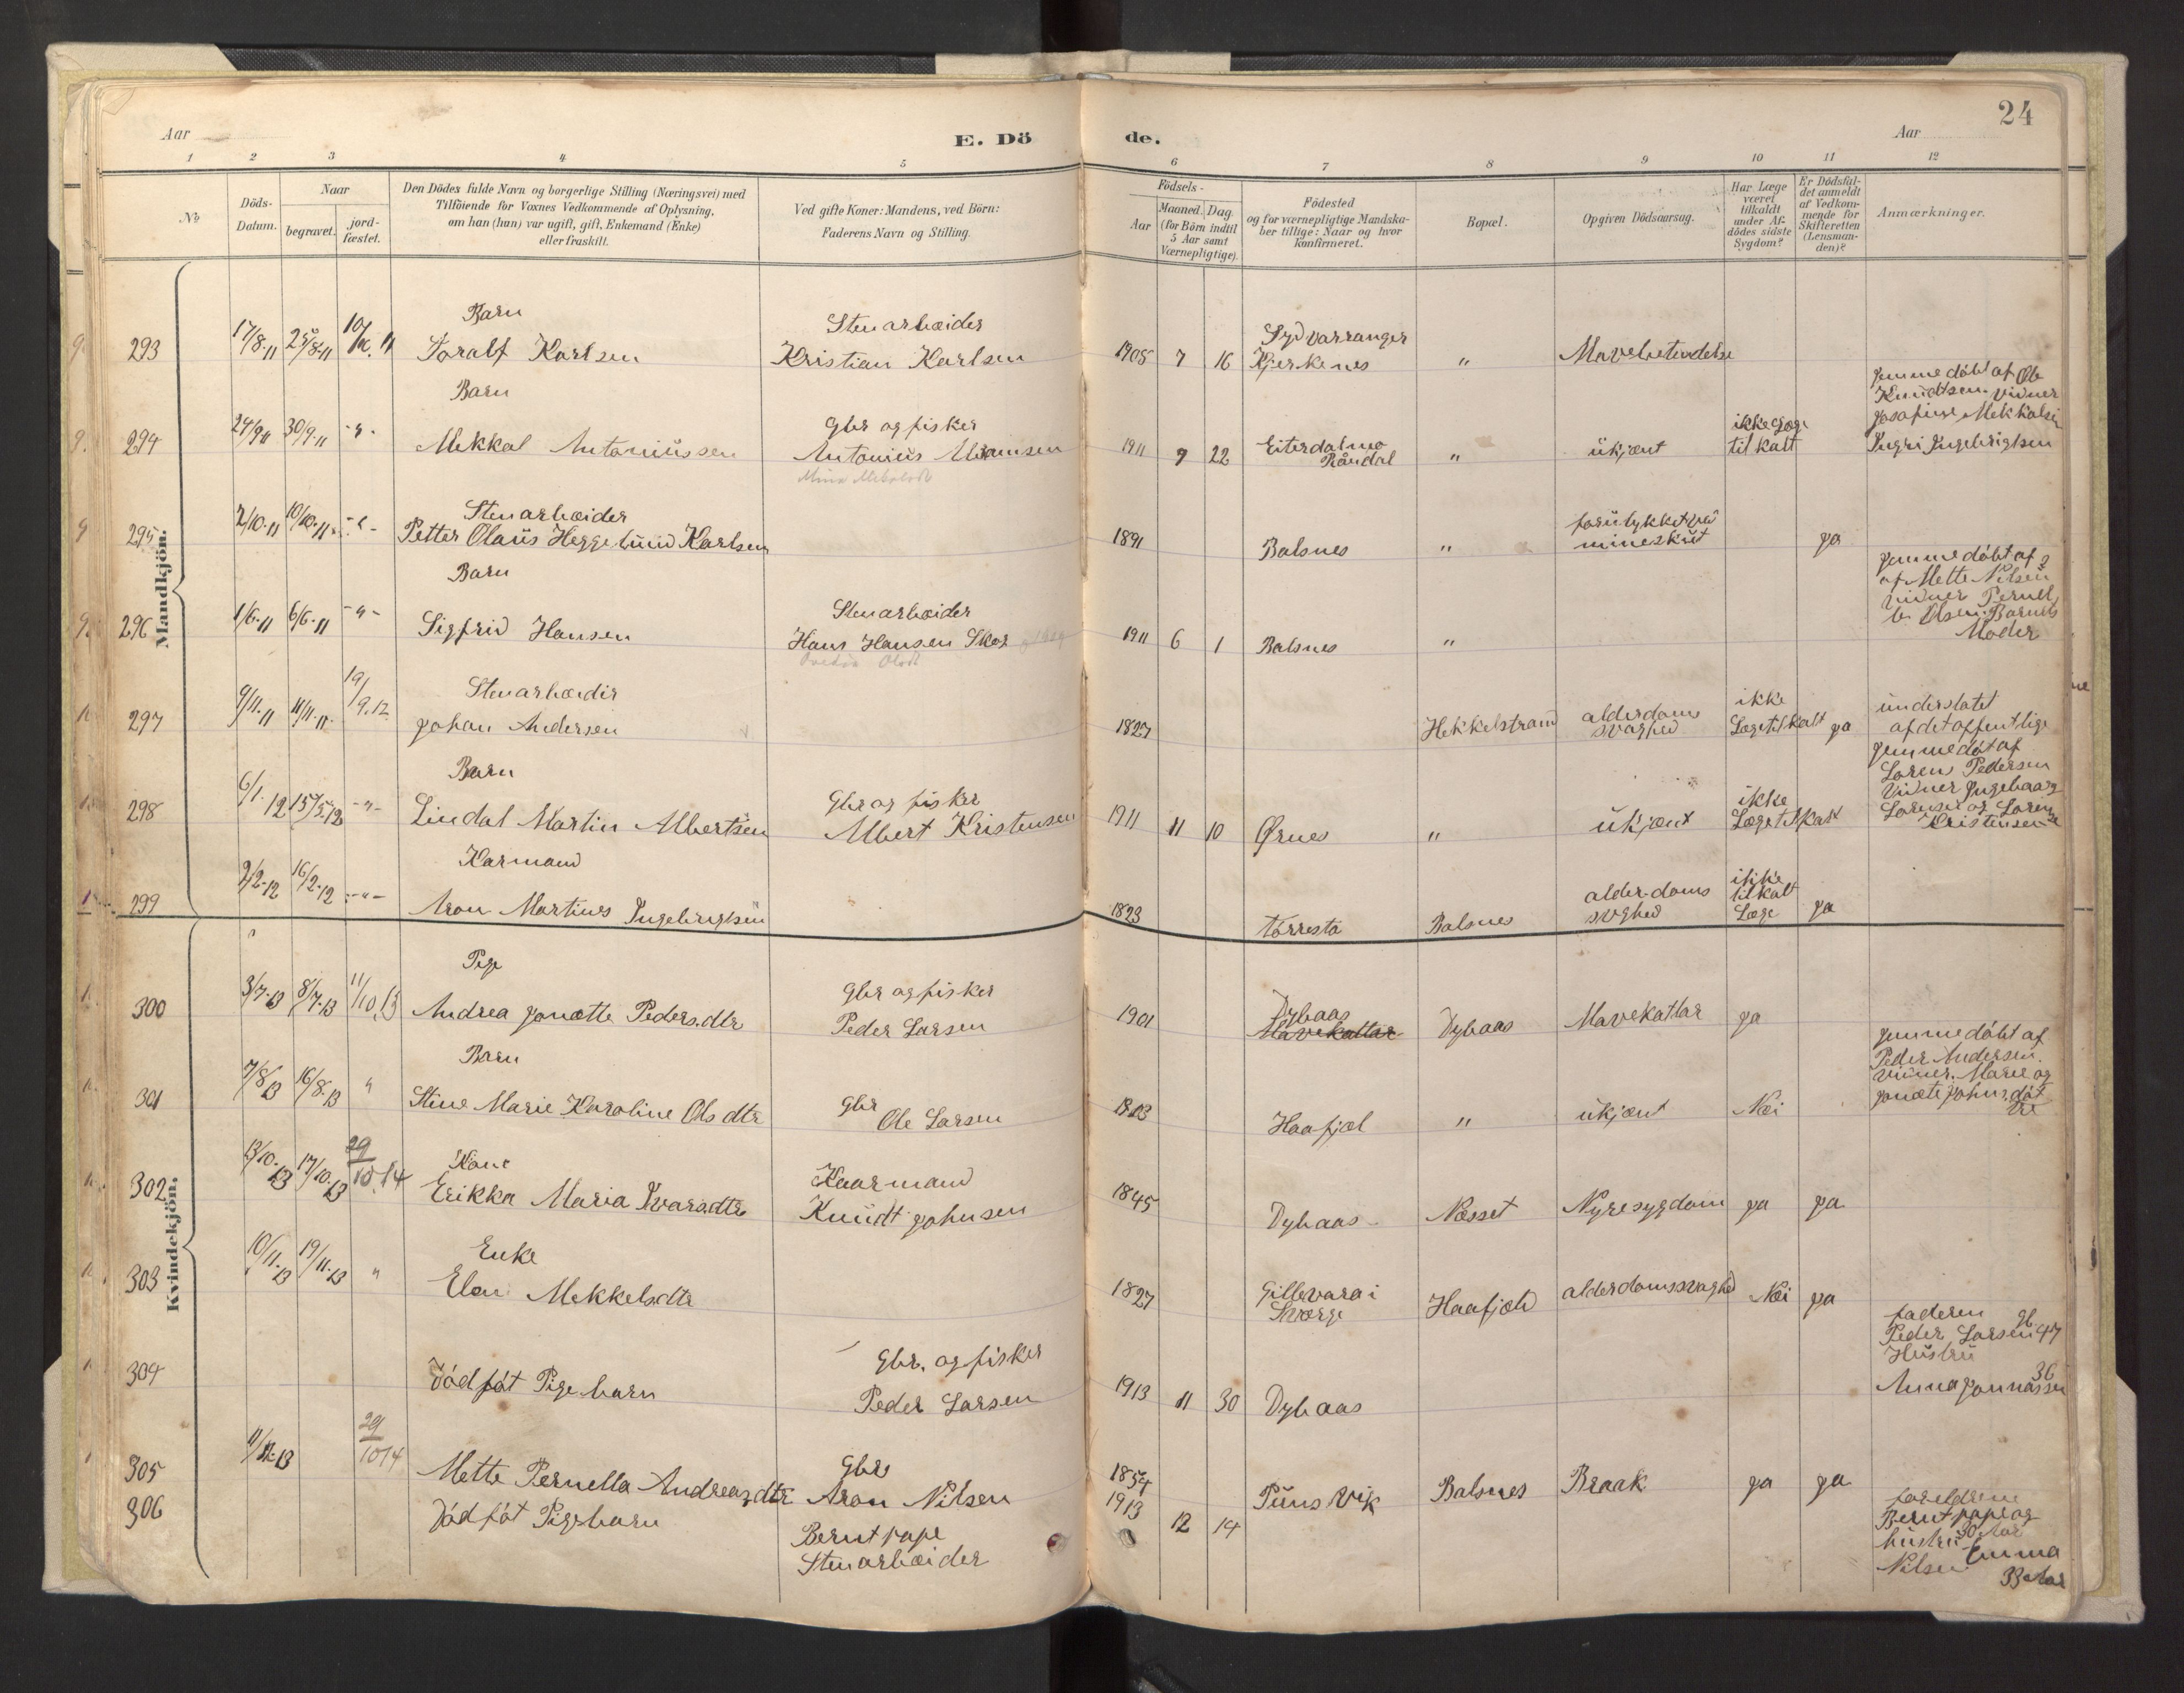 24
Aar
E. Dö
de.
Aar
1 2 3 4 5 6 7 8 9 10 11 12
No
Döds-
Datum.
Naar
begravet.
jord-
fæstet.
Den Dödes fulde Navn og borgerlige Stilling (Næringsvei) med
Tilföiende for Voxnes Vedkommende af Oplysning,
om han (hun) var ugift, gift, Enkemand (Enke)
eller fraskilt.
Ved gifte Koner: Mandens, ved Börn:
Faderens Navn og Stilling.
Födsels-
Aar
Maaned. Dag.
(for Börn indtil
5 Aar samt
Værnepligtige).
Födested
og for værnepligtige Mandska-
ber tillige: Naar og hvor
konfirmeret.
Bopæl.
Opgiven Dödsaarsag.
Har Læge
været
tilkaldt
under Af-
dödes sidste
Sygdom?
Er Dödsfal-
det anmeldt
af Vedkom-
mende for
Skifteretten
(Lensman-
den)?
Anmærkninger.
Mandkjön.
Barn Stenarbæider Sydvarranger
293 17/8-11 25/8-11 Toralf Karlsen Kristian Karlsen 1905 7 16 Kjerkenes " Mavebetendelse
Barn
jemmedöbt af Ole
Knudtsen. Vidner
josafine Mekkalsen
Gbr og fisker Eiterdalmo ikke Læge
294 24/9-11 30/9-11 -"- Mekkal Antoniussen Antonius Abramsen 1911 9 22 Råndal " ukjent tilkalt Ingri Ingebrigtsen
Stenarbæider forulykket på
295 2/10-11 10/10-11 -"- Petter Olaus Heggelund Karlsen 1891 Balsnes " mineskut ja
Barn
jemmedöbt af
af Mette Nilsen
Vidner Pernell
Stenarbæider Olsen. Barnets
296 1/6-11 6/6-11 -"- Sigfrid Hansen Hans Hansen Skar 1911 6 1 Balsnes " Moder
Stenarbæider ikke understøtet
297 9/11-11 11/11-11 19/9.12 johan Andersen 1827 Hekkelstrand alderdoms svaghed Læge tilkalt ja af det offentlige
Barn
jemmedöt af
Soren Pedersen
Vidner Ingebaarg
Gbr og fisker ikke
298 6/1-12 15/5-12 -"- Lindal Martin Albertsen Albert Kristensen 1911 11 10 Ørnes " ukjent Læge tilkalt Kristensen
Karmand
299 2/2-12 16/2-12 -"- Aron Martines Ingebrigtsen 1823 Torresta Balsnes alder-doms svghed ikke tilkalt Læge ja
Kvindekjön.
Pige Gbr og fisker Dybaas
300 3/7-13 8/7-13 11/10.13 Andrea jonette Peders.dtr Peder Larsen 1901 Mavekattar Dybaas Mavekattar ja
Barn
jemmedöbt af
Peder Andersen.
Vidner. Marie og
301 7/8-13 16/8-13 " Stine Marie Karoline Ols dtr Gbr Ole Larsen 1913 Haafjel " ukjent Nei
Kone Kaarmand
302 13/10-13 17/10-13 29/10.14 Erikka Maria Ivarsdtr Knudt johnsen 1845 Dybaas Nesset Nyresygdom ja ja
Enke
303 10/11-13 19/11-13 " Elen Mekkelsdtr 1827 Gillevara i Sværge Haafjeld alderdomssvaghed Nei ja
faderen
Peder Larsen 47
Hustru
36
Gbr. og fisker Anna Jonnassen
304 Dödföt Pigebarn Peder Larsen 1913 11 30 Dybaas
305 11/12-13 29/10 14 Mette Pernella Andreas.dtr Gbr Aron Nilsen 1854 Puns Vik Balsnes Braak ja ja
306 Dödföt Pigebarn Bernt jape Stenarbæider 1913 12 14
foreldrene
Bernt jape og
hustru Emma
Nilsen 33 Aar